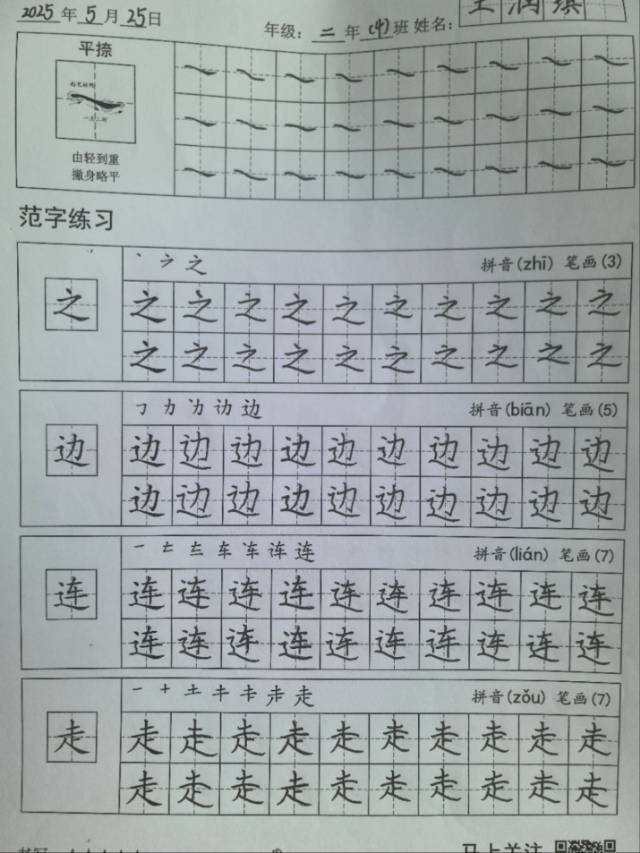 2025 年 5 月 25 日
年级: 二 年 (4) 班 姓名: 王润琪
平捺
由轻到重
撇身略平
范字练习
丶 ㇇ 之 拼音(zhī) 笔画(3)
之 之 之 之 之 之 之 之 之 之 之
之 之 之 之 之 之 之 之 之 之
㇆ 力 边 拼音(biān) 笔画(5)
边 边 边 边 边 边 边 边 边 边 边
边 边 边 边 边 边 边 边 边 边
一 车 连 拼音(lián) 笔画(7)
连 连 连 连 连 连 连 连 连 连 连
连 连 连 连 连 连 连 连 连 连
一 十 土 走 拼音(zǒu) 笔画(7)
走 走 走 走 走 走 走 走 走 走 走
走 走 走 走 走 走 走 走 走 走
马上关注